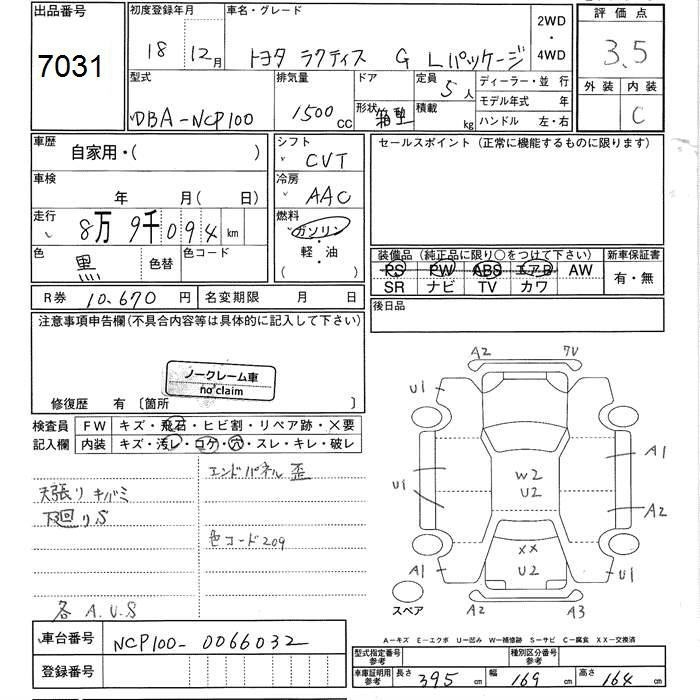 出品番号
7031
初度登録年月
18 12月
車名・グレード
トヨタ ラクティス G Lパッケージ
2WD
・
4WD
評価点
3.5
外装 内装
C
型式
DBA-NCP100
排気量
1500cc
ドア
形状 箱型
定員 5人
積載 kg
ディーラー・並行
モデル年式 年
ハンドル 左・右
車歴 自家用・( )
シフト
CVT
セールスポイント (正常に機能するものに限ります)
車検
年 月( 日)
冷房
AAC
走行
8万9千094km
燃料
ガソリン
・
軽・油
( )
色
黒
色替
色コード
装備品 (純正品に限り○をつけて下さい)
PS PW ABS エアB AW
SR ナビ TV カワ
新車保証書
有・無
R券 10,670円
名変期限 月 日
後日品
注意事項申告欄(不具合内容等は具体的に記入して下さい)
ノークレーム車
no claim
修復歴 有 〔箇所 〕
検査員
記入欄
FW キズ・飛石・ヒビ割・リペア跡・X要
内装 キズ・汚レ・コゲ・穴・スレ・キレ・破レ
天張りキバミ
下回りS
各 A.U.S
エンドパネル歪
色コード209
A2 7V
U1
A1
W2
U2
U1
A2
XX
U2
A1
U1
スペア
A2 A3
A−キズ E−エクボ U−凹み W−補修跡 S−サビ C−腐食 XX−交換済
車台番号 NCP100-0066032
登録番号
型式指定番号
参考
種別区分番号
参考
車庫証明用
参考
長さ 395cm 幅 169cm 高さ 164cm